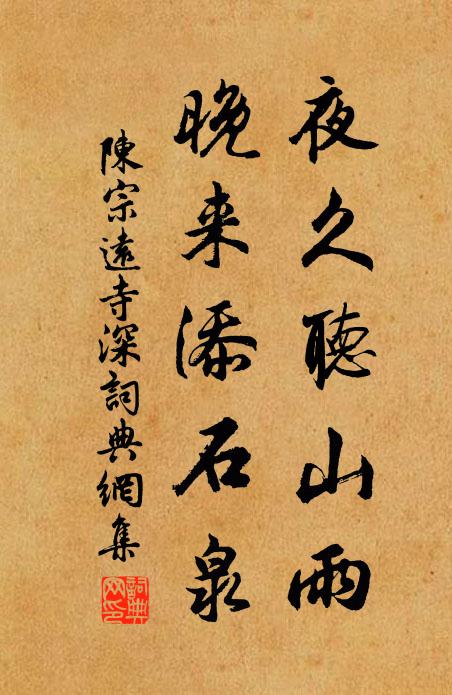 夜久聽山雨
晚来添石泉
陳宗遠寺深詞典網集
詞典网印